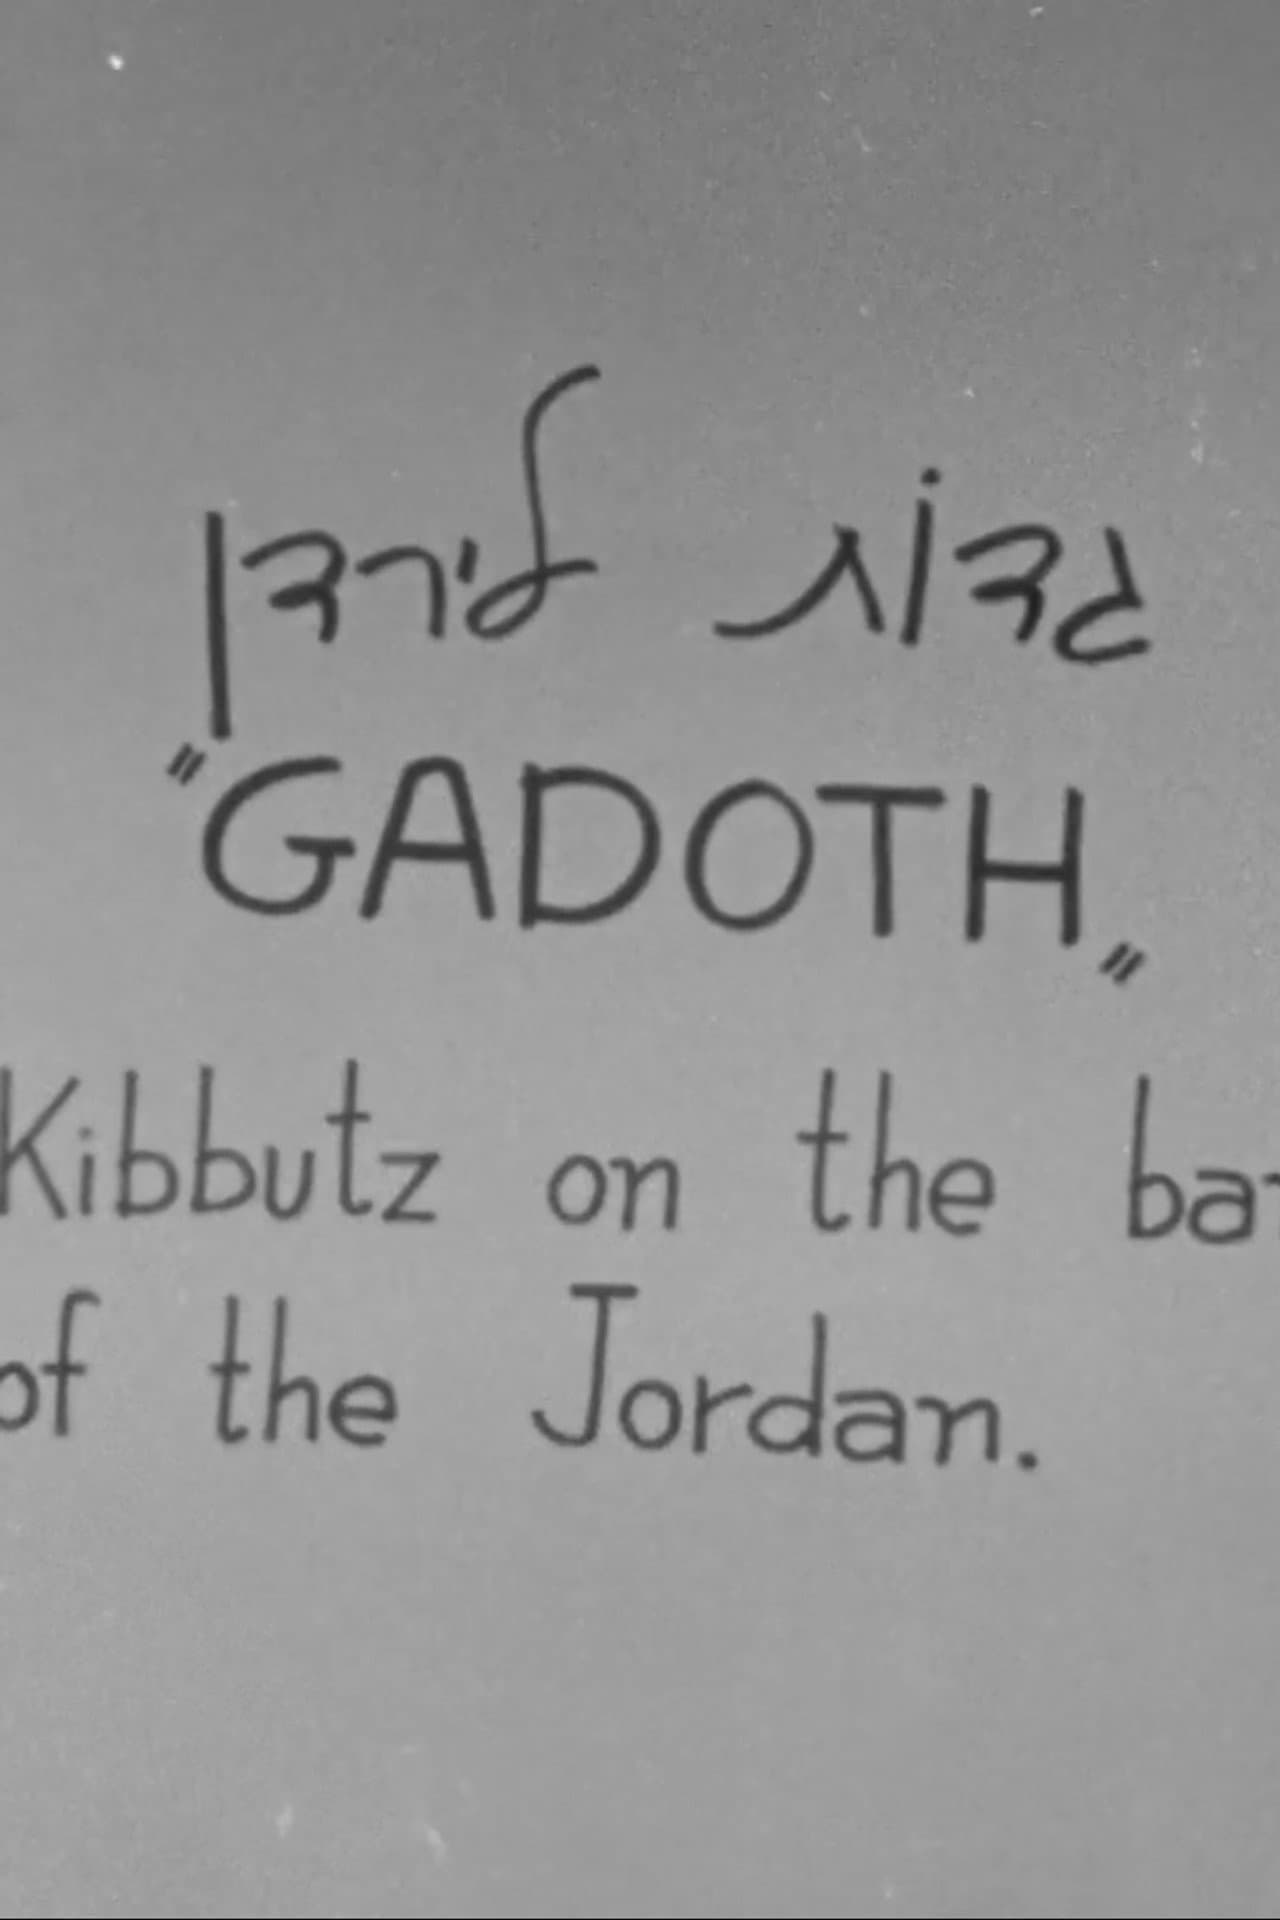 גדות לירדן
"GADOTH"
Kibbutz on the
of the Jordan.